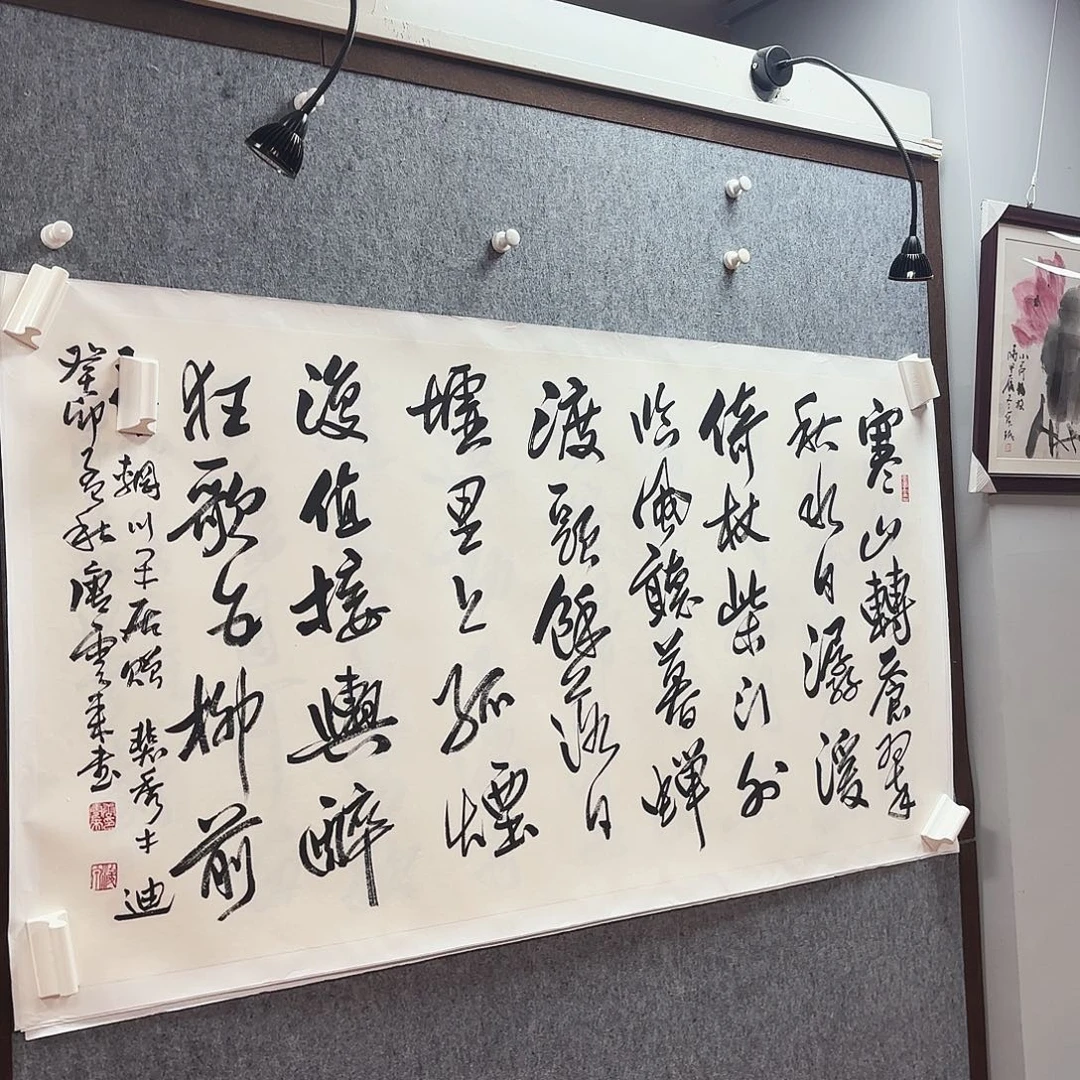 寒山轉蒼翠
秋水日潺湲
倚杖柴门外
临風聽暮蟬
渡頭餘落日
墟里上孤煙
復值接輿醉
狂歌五柳前
輞川闲居赠裴秀才迪
癸卯孟秋唐雲来書